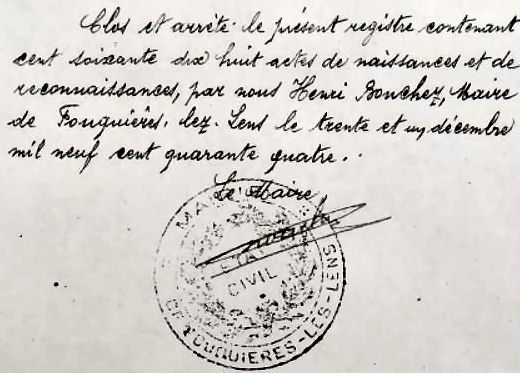 Clos et arrêté le présent registre contenant
cent soixante dix huit actes de naissances et de
reconnaissances, par nous Henri Bouchez, Maire
de Fouquières. lez. Lens le trente et un décembre
mil neuf cent quarante quatre.
Le Maire
MAIRIE
ETAT
CIVIL
DE FOUQUIERES-LES-LENS